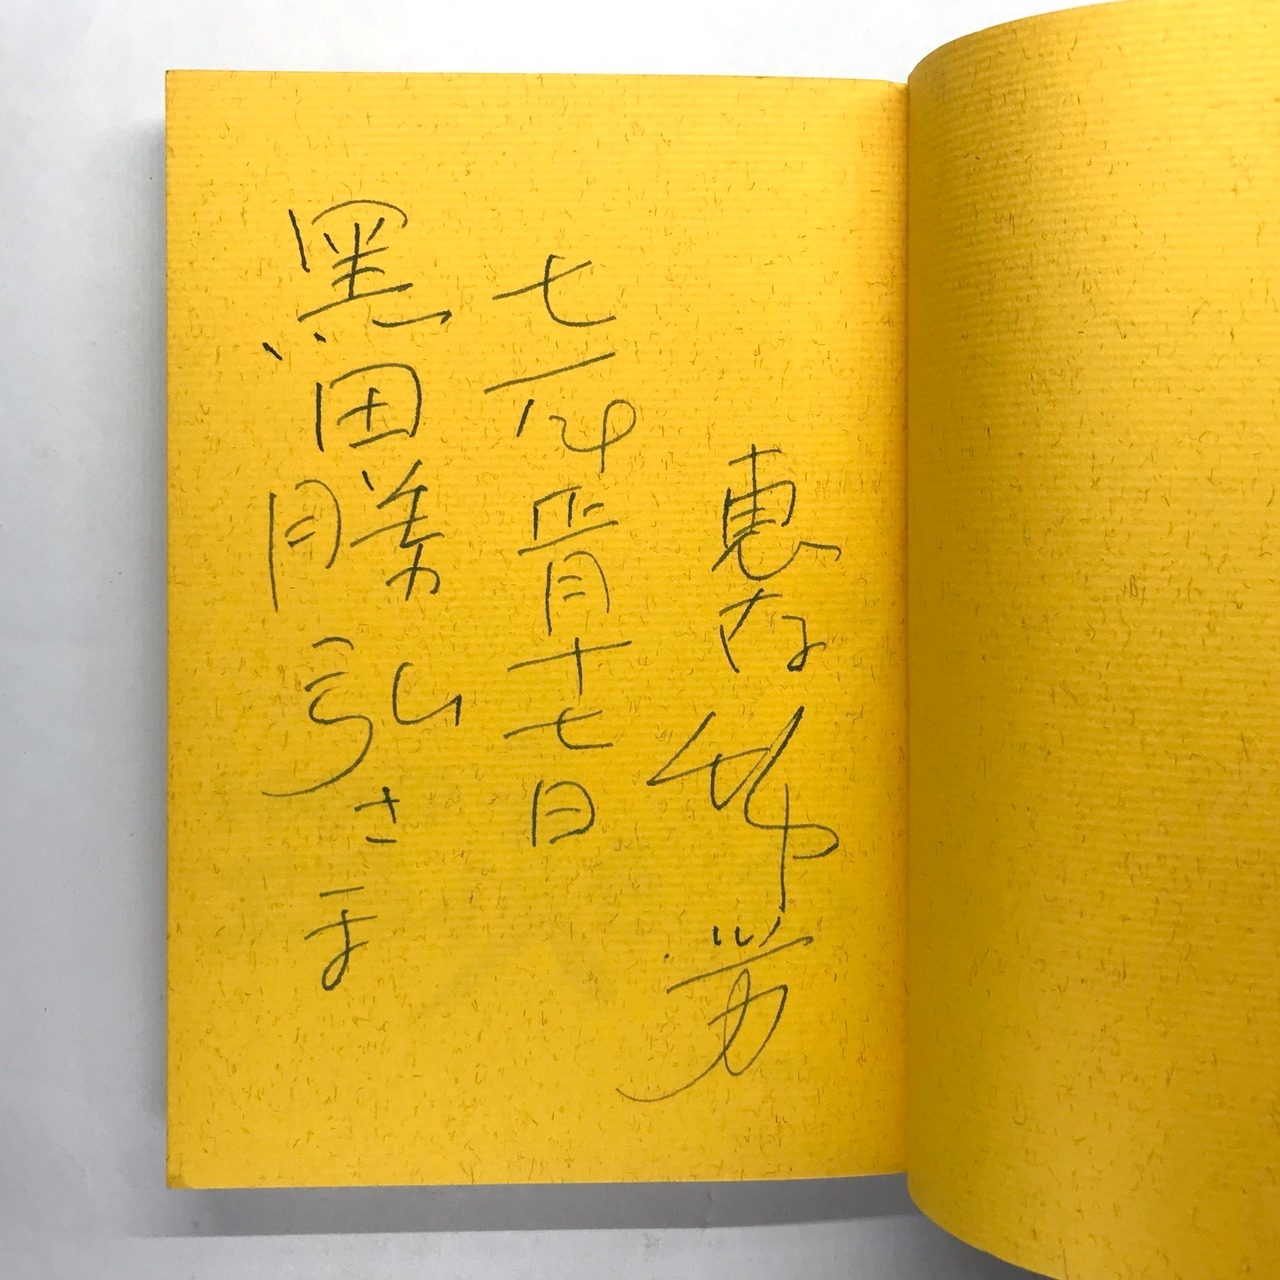 恵存
竹中労
七六年四月十七日
黒田勝弘さま